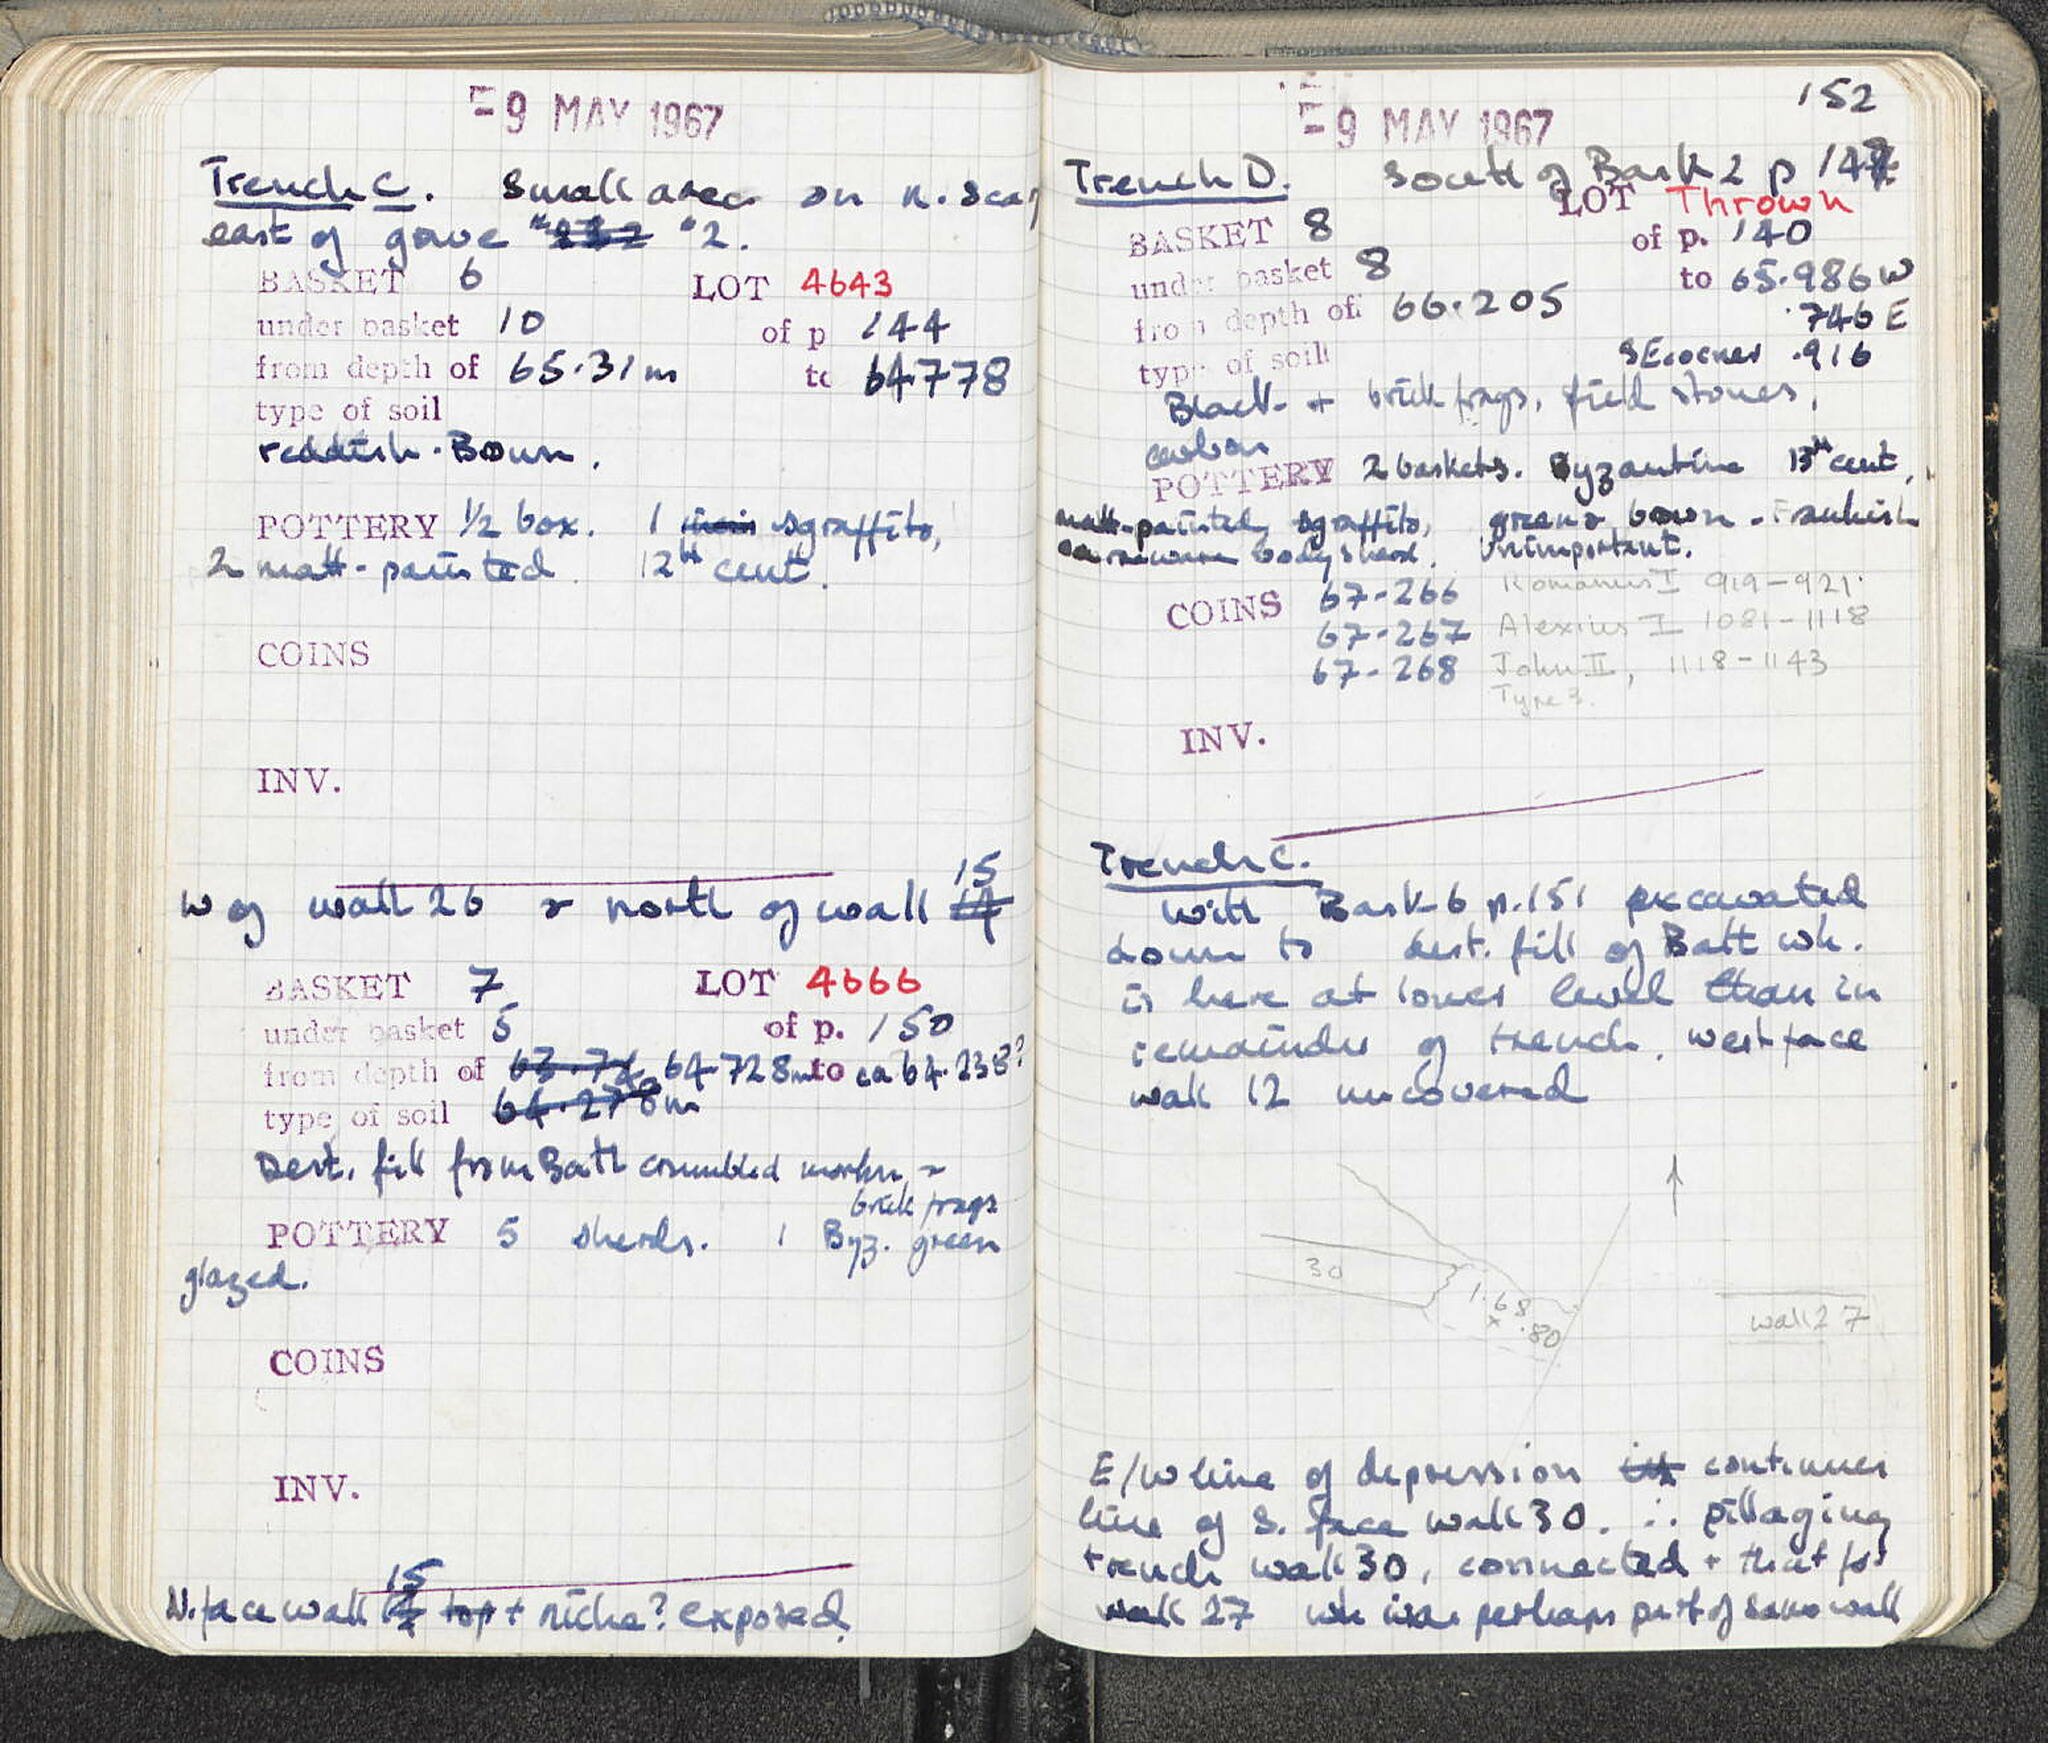 - 9 MAY 1967
Trench C. Small area on N. Scarp
east of grave "2.
BASKET 6 LOT 4643
under basket 10 of p 144
from depth of 65.31m to 64.778
type of soil
reddish-Boun.
POTTERY 1/2 box. 1 sgraffito,
2 matt-painted. 12th cent.
COINS
INV.
W of wall 26 & north of wall 15
BASKET 7 LOT 4666
under basket 5 of p. 150
from depth of 63.74 64.728m to ca 64.238?
type of soil 64.278m
Dest. fill from Bath crumbled mortar &
brick frags
POTTERY 5 sherds. 1 Byz. green
glazed.
COINS
INV.
N. face wall 15 top + niche? exposed.
- 9 MAY 1967
152
Trench D. South of Bask 2 p 147
LOT Thrown
BASKET 8 of p. 140
under basket 8 to 65.986 W
from depth of 66.205 .746 E
type of soil SE corner .916
Black + brick frags, field stones,
carbon
POTTERY 2 baskets. Byzantine 13th cent,
matt-painted, sgraffito, green & brown - Frankish
body sherd. Unimportant.
COINS 67-266 Romanus I 919-921.
67-267 Alexius I 1081-1118
67-268 John II, 1118-1143
Type 3.
INV.
Trench C.
With Bask 6 p.151 excavated
down to dest. fill of Bath wh.
is here at lower level than in
remainder of trench. west face
wall 12 uncovered
30
1.68
x .80
wall 27
E/W line of depression continues
line of S. face wall 30. ∴ pillaging
trench wall 30, connected + that for
wall 27 wh was perhaps part of same wall